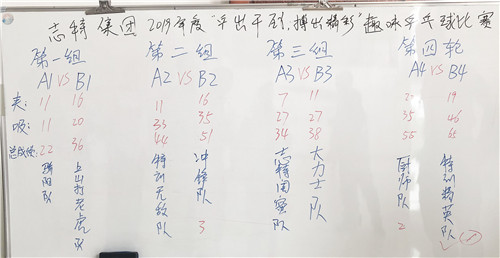 志特集团2019年度"乒出干劲,搏出精彩"趣味乒乓球比赛
第一组 第二组 第三组 第四轮
A1 VS B1 A2 VS B2 A3 VS B3 A4 VS B4
夹: 11 16 11 16 7 11 19
吸: 11 20 33 35 27 27 35 46
总成绩: 22 36 44 51 34 38 55 65
上山打老虎队
特训无敌队
冲锋队
志特闺蜜队
大力士队
厨师队
特训精英队
3 2